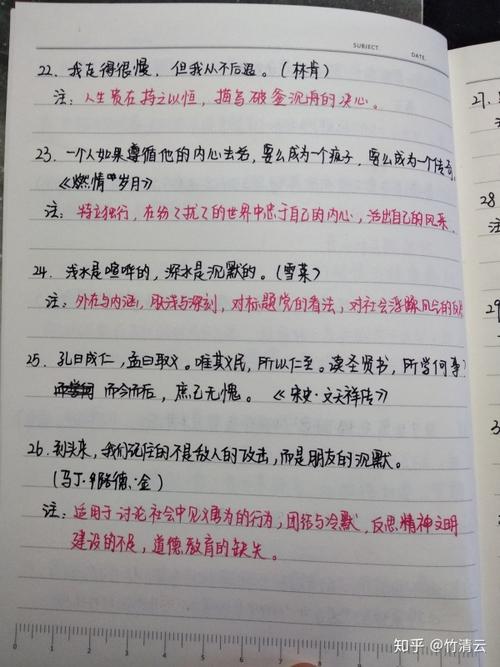 SUBJECT
DATE.
22. 我走得很慢，但我从不后退。(林肯)
注：人生贵在持之以恒，描写破釜沉舟的决心。
23. 一个人如果遵循他的内心去活，要么成为一个疯子，要么成为一个传奇。
《燃情岁月》
注：特立独行，在纷纷扰扰的世界中忠于自己的内心，活出自己的风采
24. 浅水是喧哗的，深水是沉默的。(雪莱)
注：外在与内涵，肤浅与深刻，对标题党的看法，对社会浮躁风气的
25. 孔曰成仁，孟曰取义。唯其义尽，所以仁至。读圣贤书，所学何事？
而今而后，庶几无愧。《宋史·文天祥传》
26. 到头来，我们记住的不是敌人的攻击，而是朋友的沉默。
(马丁·路德·金)
注：适用于讨论社会中见义勇为的行为，团结与冷默，反思精神文明
建设的不足，道德教育的缺失。
27.
28
注
29
3
0 1 2 3 4 5 6 7
知乎 @竹清云